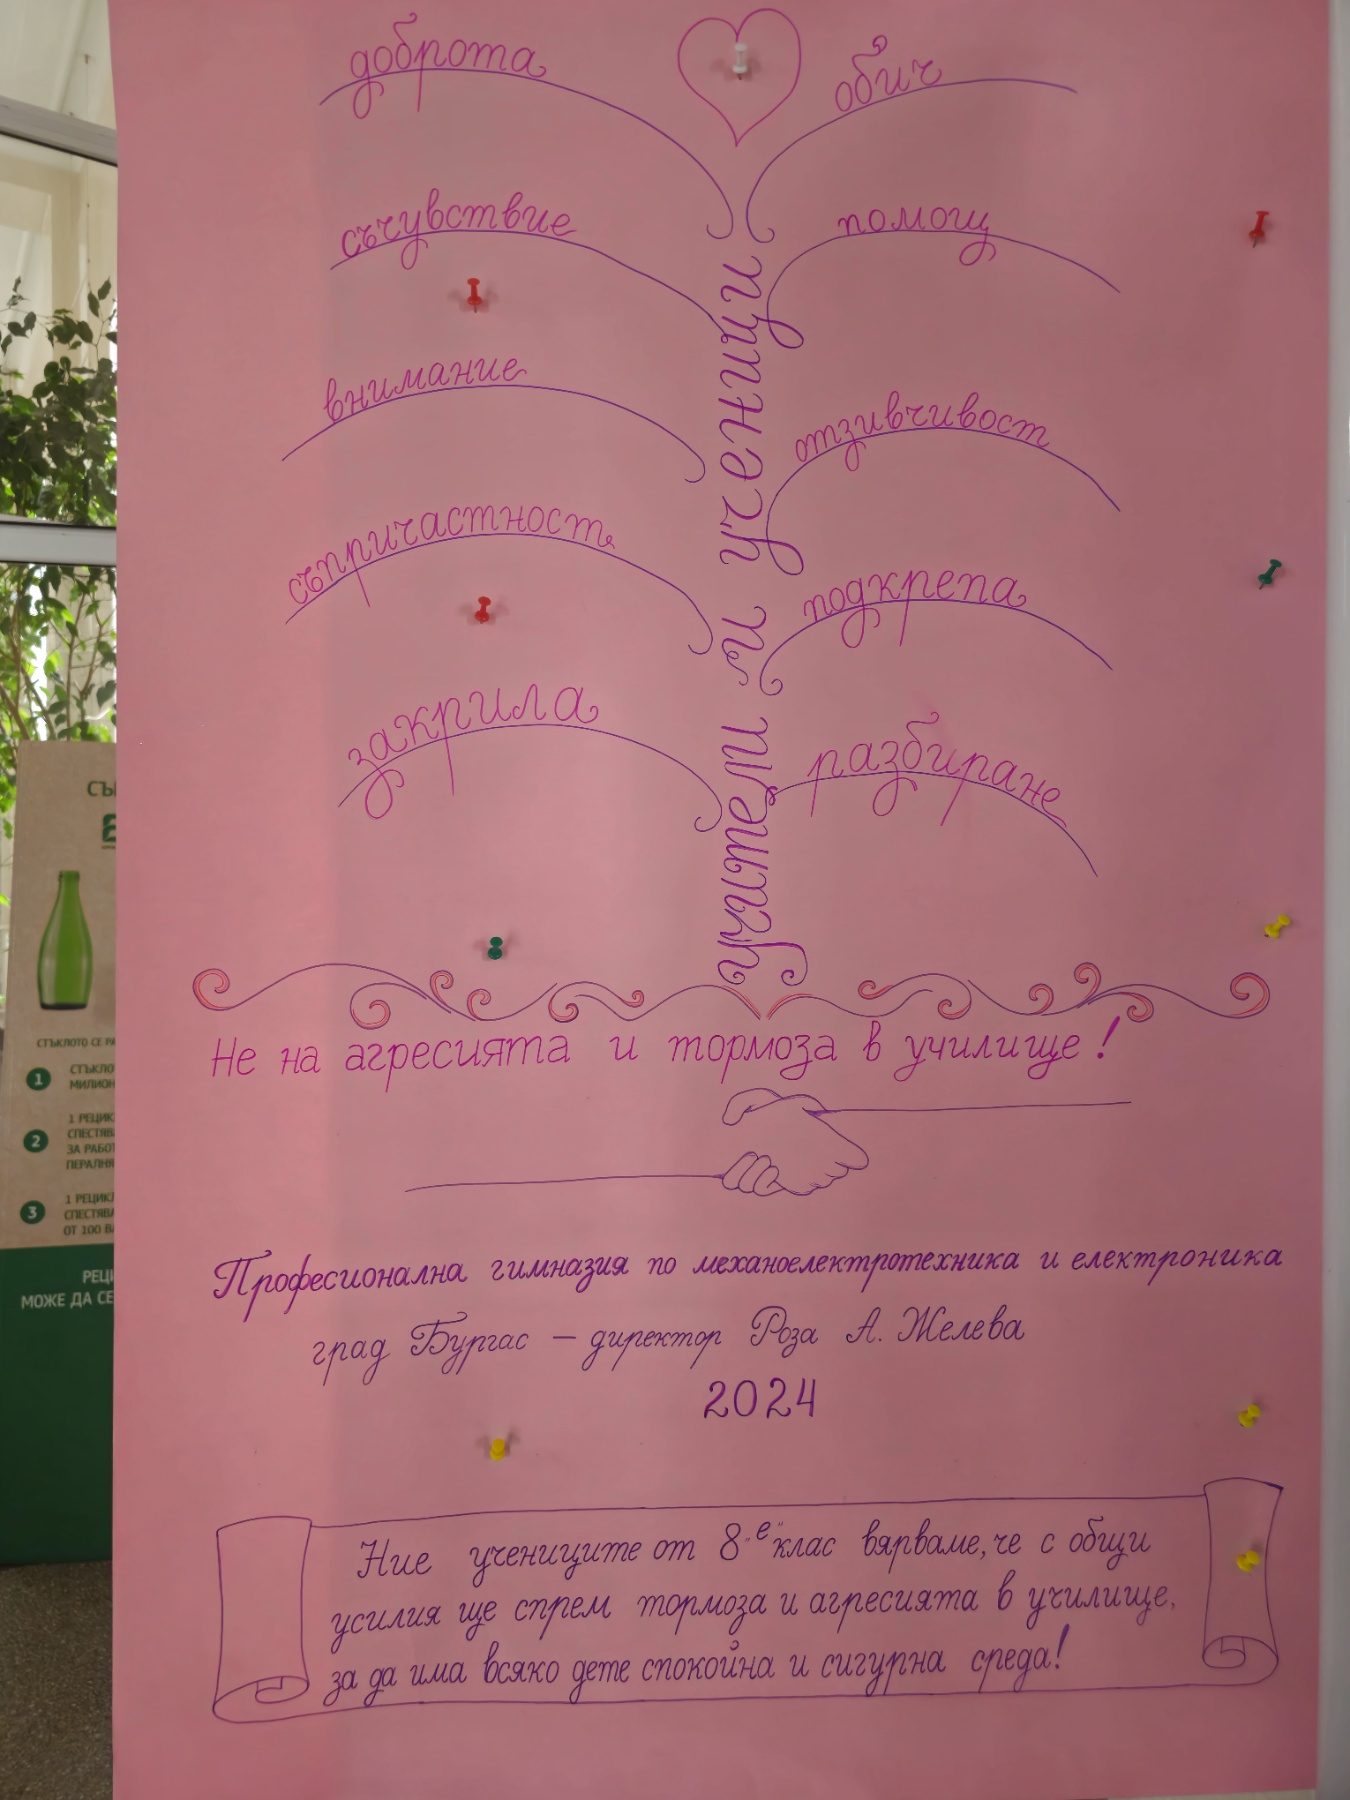 доброта
обич
съчувствие
помощ
внимание
отзивчивост
съпричастност
подкрепа
закрила
разбиране
учители и ученици
Не на агресията и тормоза в училище!
Професионална гимназия по механоелектротехника и електроника
град Бургас – директор Роза А. Желева
2024
Ние учениците от 8 "е" клас вярваме, че с общи
усилия ще спрем тормоза и агресията в училище,
за да има всяко дете спокойна и сигурна среда!
СТЪКЛОТО СЕ
1
2
1 РЕЦИК
ЗА РАБОТ
ПЕРАЛНЯ
3
1 РЕЦИКЛ
ОТ 100
РЕЦИ
МОЖЕ ДА СЕ